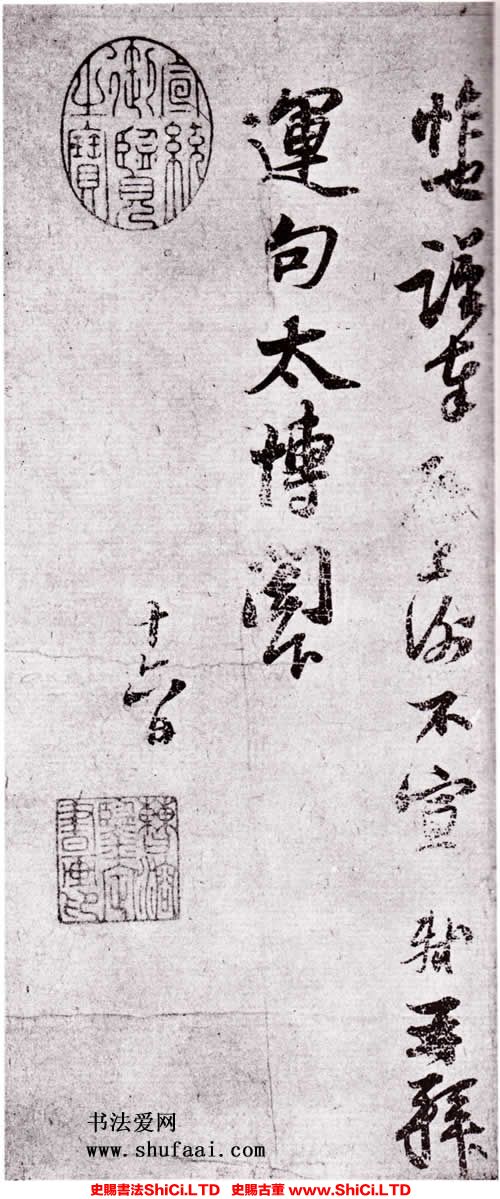 怍也謹奉啓上謝不宣 軾再拜
運句太博閣下
十六日
宣統御覽之寶
曹溶鑒定書畫印
书法爱网
www.shufaai.com
史賜書法ShiCi.LTD 史賜古董 www.ShiCi.LTD